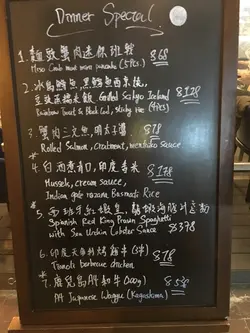 Dinner Special
1. 麵豉蟹肉迷你班戟 $68
Miso Crab meat mini pancake (3pcs)
2. 冰島鱒魚、黑鱈魚西京燒, $128
Grilled Saikyo Iceland
Rainbow Trout & Black Cod, Sticky rice (4pcs)
3. 蟹肉三文魚、明太子醬 $78
Rolled Salmon, Crabmeat, mentaiko Sauce
4. 白酒煮青口, 印度香米 $178
Mussels, cream sauce,
Indian gold razona Basmati Rice
5. 西班牙紅蝦皇, 龍蝦海膽汁意粉
Spanish Red King Prawn Spaghetti
with Sea Urchin Lobster Sauce $378
6. 印度天多利烤雞串 (3串) $78
Tandoori barbecue chicken
7. 鹿兒島A4和牛 (100g) $538
A4 Japanese Wagyu (Kagoshima)